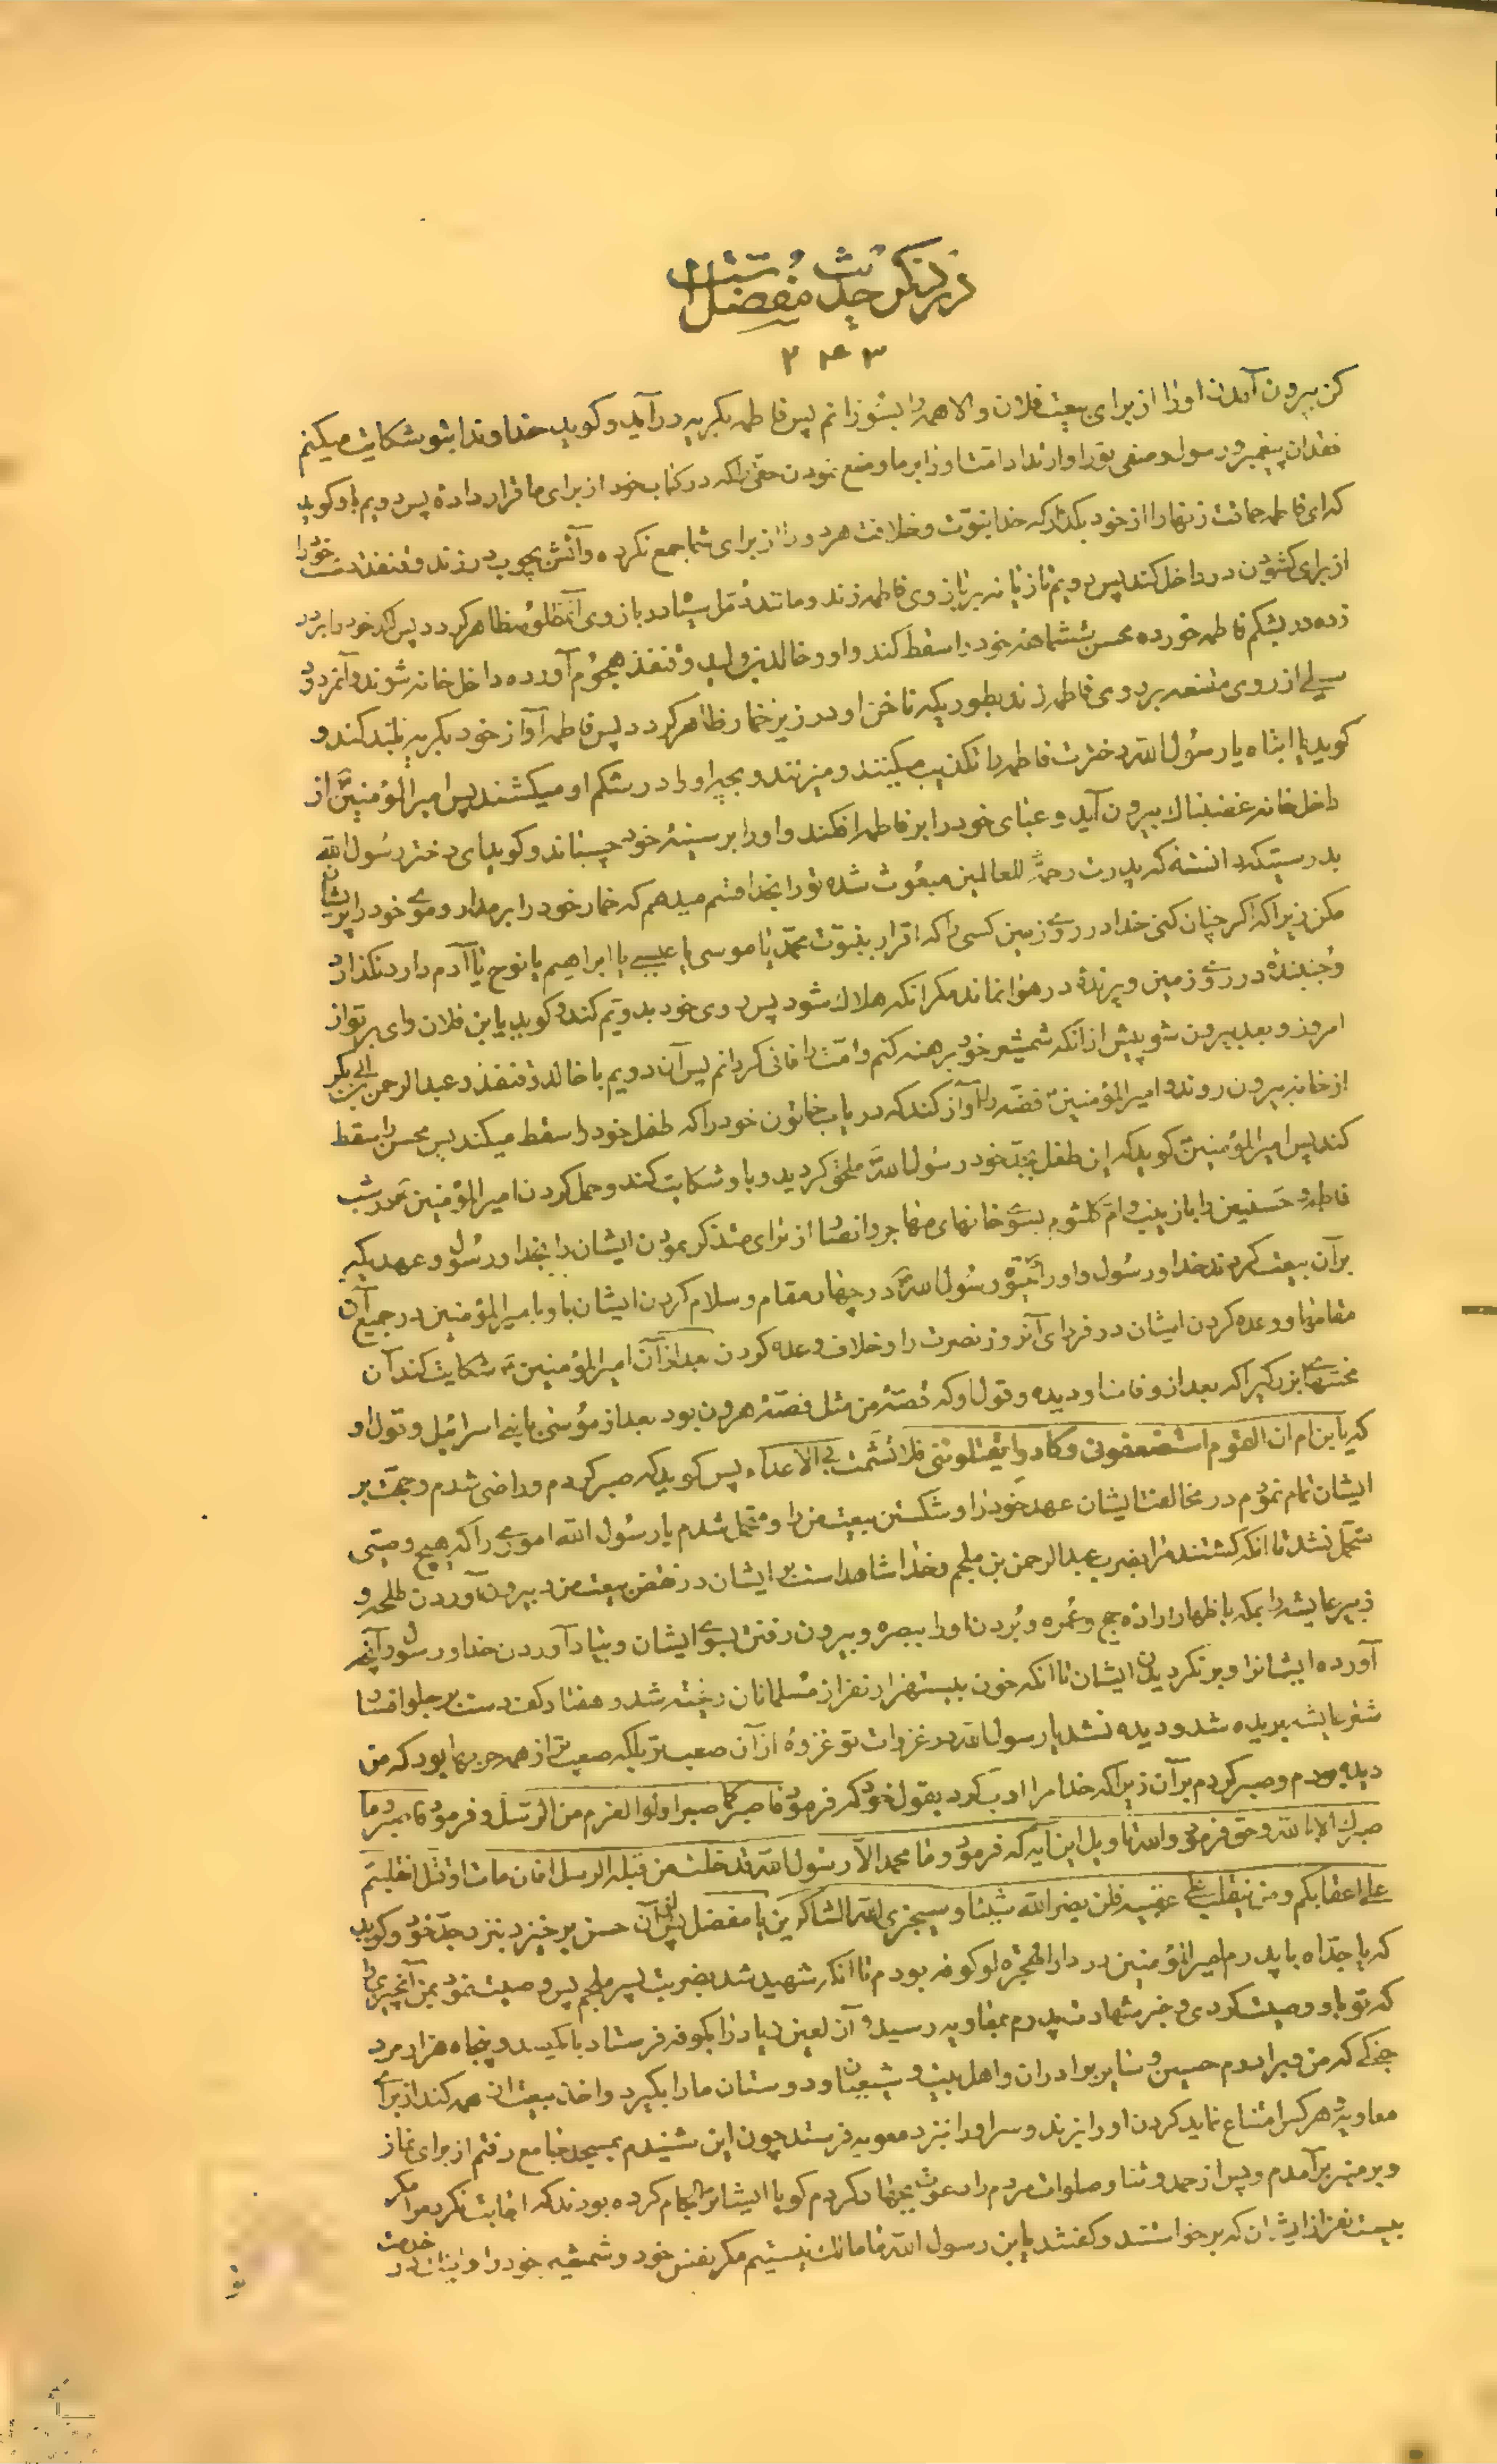 در ذکر حدیث مفضل است
۲۴۳
کن بیرون آمدن او را از برای بیعت فلان والا همه را بسوزانم پس فاطمه بگریه درآید و گوید خداوندا بتو شکایت میکنم
فقدان پیغمبر و رسول و صفی تو را و ارتداد امت او را بر ما و منع نمودن حقی را که در کتاب خود از برای ما قرار داده پس دویم باو گوید
که ای فاطمه حماقت زنها را از خود بگذار که خدا نبوّت و خلافت هر دو را از برای شما جمع نکرده و آتش بچوب در زند و قنفذ دست خود را
از برای گشودن در داخل کند پس دویم تازیانه بر بازوی فاطمه زند و مانند دمل سیاه در بازوی آن مظلومه ظاهر گردد پس لگد خود را بر در
زده در بشکم فاطمه خورده محسن ششماهه خود را سقط کند و او و خالد بن ولید و قنفذ هجوم آورده داخل خانه شوند و آنمردود
سیلی از روی مقنعه بر روی فاطمه زند بطوریکه ناخن او در زیر خمار ظاهر گردد پس فاطمه آواز خود بگریه بلند کند و
گوید یا ابتاه یا رسول الله دخترت فاطمه را تکذیب میکنند و میزنند و بچه او را در شکم او میکشند پس امیرالمؤمنین از
داخل خانه غضبناک بیرون آید و عبای خود را بر فاطمه افکند و او را بر سینه خود چسباند و گوید ای دختر رسول الله
بدرستیکه دانسته که پدرت رحمة للعالمین مبعوث شده تو را بخدا قسم میدهم که خمار خود را برمدار و موی خود را پریشان
مکن زیرا که اگر چنان کنی خدا در روی زمین کسی را که اقرار بنبوّت محمد یا موسی یا عیسی یا ابراهیم یا نوح یا آدم دارد نگذارد
و جنبنده در روی زمین و پرنده در هوا نماند مگر انکه هلاک شود پس روی خود بدویم کند و گوید یا بن فلان وای بر تو از
امروز و بعد بیرون شو پیش از انکه شمشیر خود برهنه کنم و امت را فانی گردانم پس آن دویم با خالد و قنفذ و عبدالرحمن بن ابی بکر
از خانه بیرون روند و امیرالمؤمنین فضّه را آواز کند که دریاب خاتون خود را که طفل خود را سقط میکند پس محسن را سقط
کند پس امیرالمؤمنین گوید که این طفل بجدّ خود رسول الله ملحق گردید و باو شکایت کند و حمل کردن امیرالمؤمنین در شب
فاطمه و حسنین را با زینب و ام کلثوم بسوی خانهای مهاجر و انصار از برای متذکر نمودن ایشان را بخدا و رسول و عهدیکه
بر آن بیعت کردند خدا و رسول و او را در حیوة رسول الله در چهار مقام و سلام کردن ایشان باو بامیرالمؤمنین در جمیع آن
مقامها و وعده کردن ایشان در فردای آنروز نصرت را و خلاف وعده کردن بعد از آن امیرالمؤمنین شکایت کند آن
محنتهای بزرگیرا که بعد از وفات او دیده و قول او که قصّه من مثل قصّه هرون بود بعد از موسی با بنی اسرائیل و قول او
که یا بن ام ان القوم استضعفونی و کادوا یقتلوننی فلا تشمت بی الاعداء پس گوید که صبر کردم و راضی شدم و حجت بر
ایشان تمام نمودم در مخالفت ایشان عهد خود را و شکستن بیعت من را و متحمل شدم یا رسول الله اموری را که هیچ وصیّی
متحمل نشد تا انکه کشتند مرا بضربت عبدالرحمن بن ملجم و خدا شاهد است بر ایشان در نقض بیعت من و بیرون آوردن طلحه و
زبیر عایشه را بمکه باظهار اراده حج و عمره و بردن او را ببصره و بیرون رفتن بسوی ایشان و بیاد آوردن خدا و رسول و آنچه
آورده ایشانرا و برنگردیدن ایشان تا انکه خون بیست هزار نفر از مسلمانان ریخته شد و هفتاد کف دست بر جلو افسار
شتر عایشه بریده شد و دیده نشد یا رسول الله در غزوات تو غزوه از آن صعبتر بلکه صعبتر از همه حربها بود که من
دیده بودم و صبر کردم بر آن زیرا که خدا مرا ادب کرد بقول خود که فرمود فاصبر کما صبر اولوا العزم من الرسل و فرمود فاصبر و ما
صبرک الا بالله و حق فرمود والله تاویل این آیه که فرمود و ما محمد الا رسول الله قد خلت من قبله الرسل افان مات او قتل انقلبتم
علی اعقابکم و من ینقلب علی عقبیه فلن یضر الله شیئا و سیجزی الله الشاکرین یا مفضل پس از آن حسن برخیزد بنزد جدّ خود و گوید
که یا جدّاه با پدرم امیرالمؤمنین در دار الهجره او کوفه بودم تا انکه شهید شد بضربت پسر ملجم پس وصیت نمود بمن آنچیزی را
که تو باو وصیت کردی و خبر شهادت پدرم بمعاویه رسید و آن لعین زیاد را بکوفه فرستاد با یکصد و پنجاه هزار مرد
جنگی که من و برادرم حسین و سایر برادران و اهل بیت و شیعیان و دوستان ما را بگیرد و اخذ بیعت از همه کند از برای
معاویه و هر کس امتناع نماید گردن او را بزند و سر او را بنزد معویه فرستد چون این شنیدم بمسجد جامع رفتم از برای نماز
و بر منبر برآمدم و پس از حمد و ثنا و صلوات مردم را دعوت بجهاد کردم گویا ایشانرا لجام کرده بودند که اجابت نکرد مرا مگر
بیست نفر از ایشان که برخواستند و گفتند یا بن رسول الله ما مالک نیستیم مگر نفس خود و شمشیر خود را و اینک در خدمت
تو